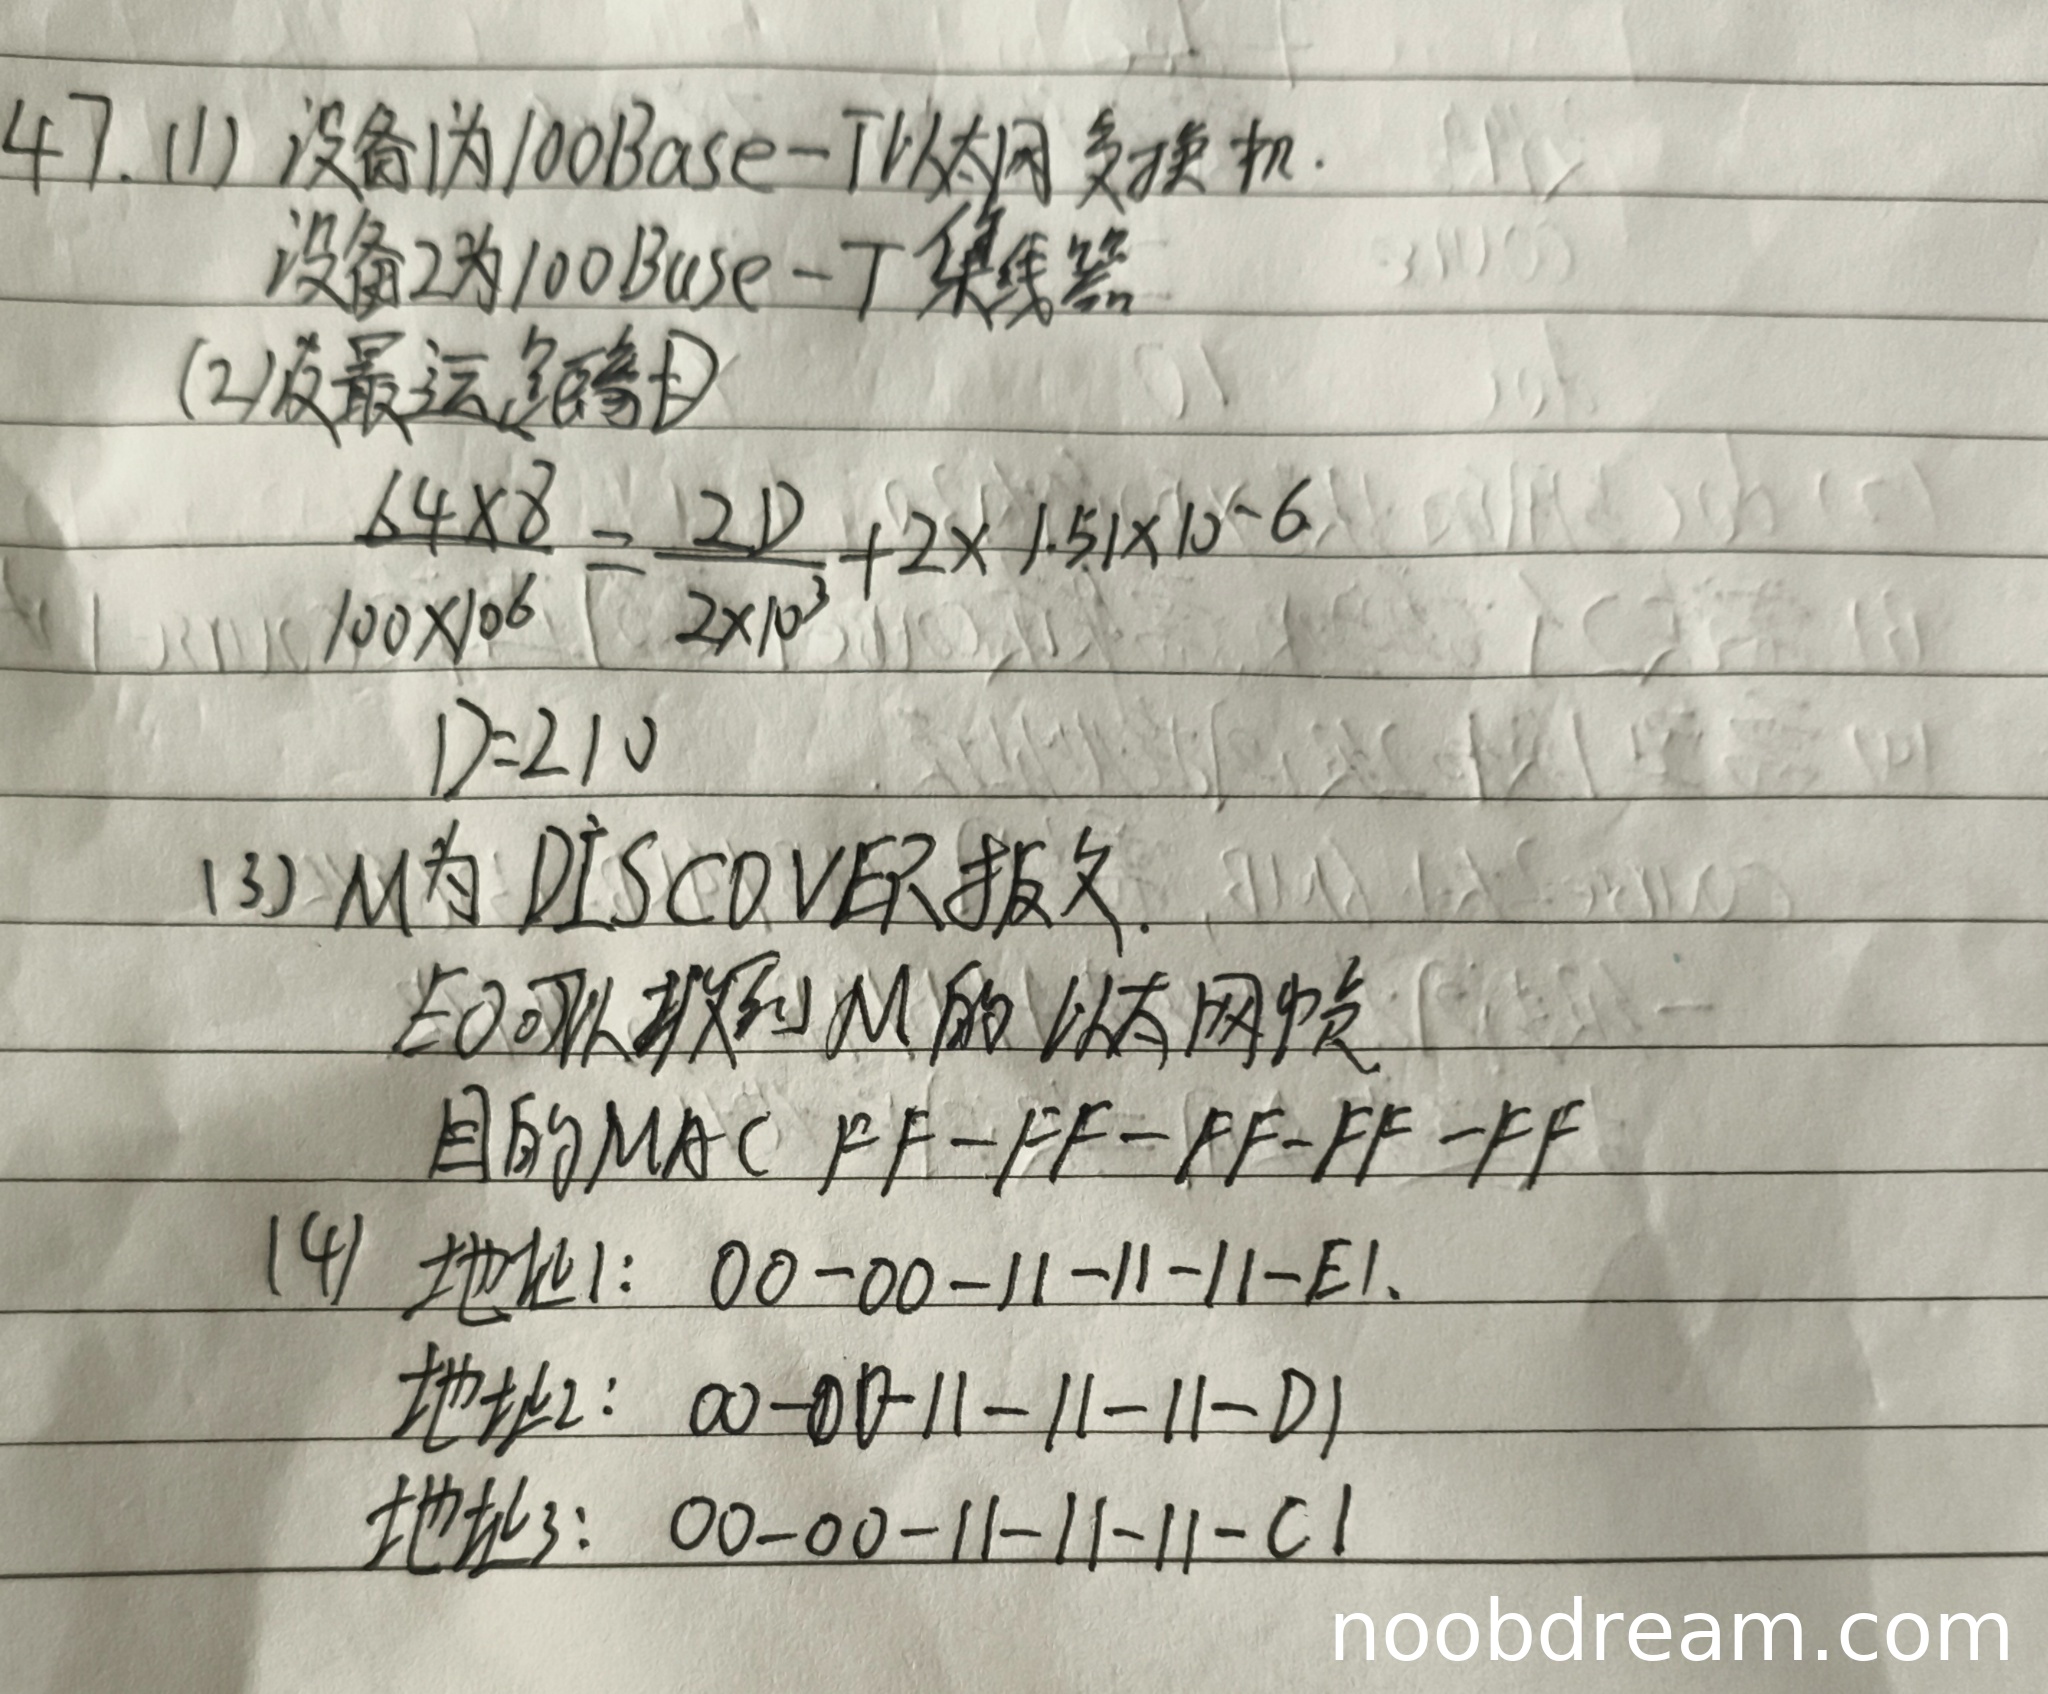 47. (1) 设备1为100Base-T以太网交换机.
设备2为100Base-T集线器
(2)设最远距离D
64×8 / 100×10^6 = 2D / 2×10^3 + 2×1.51×10^-6
D=210
(3) M为 DISCOVER报文.
E0可以收到 M 的 以太网帧
目的MAC FF-FF-FF-FF-FF
(4) 地址1: 00-00-11-11-11-E1.
地址2: 00-00-11-11-11-D1
地址3: 00-00-11-11-11-C1
noobdream.com